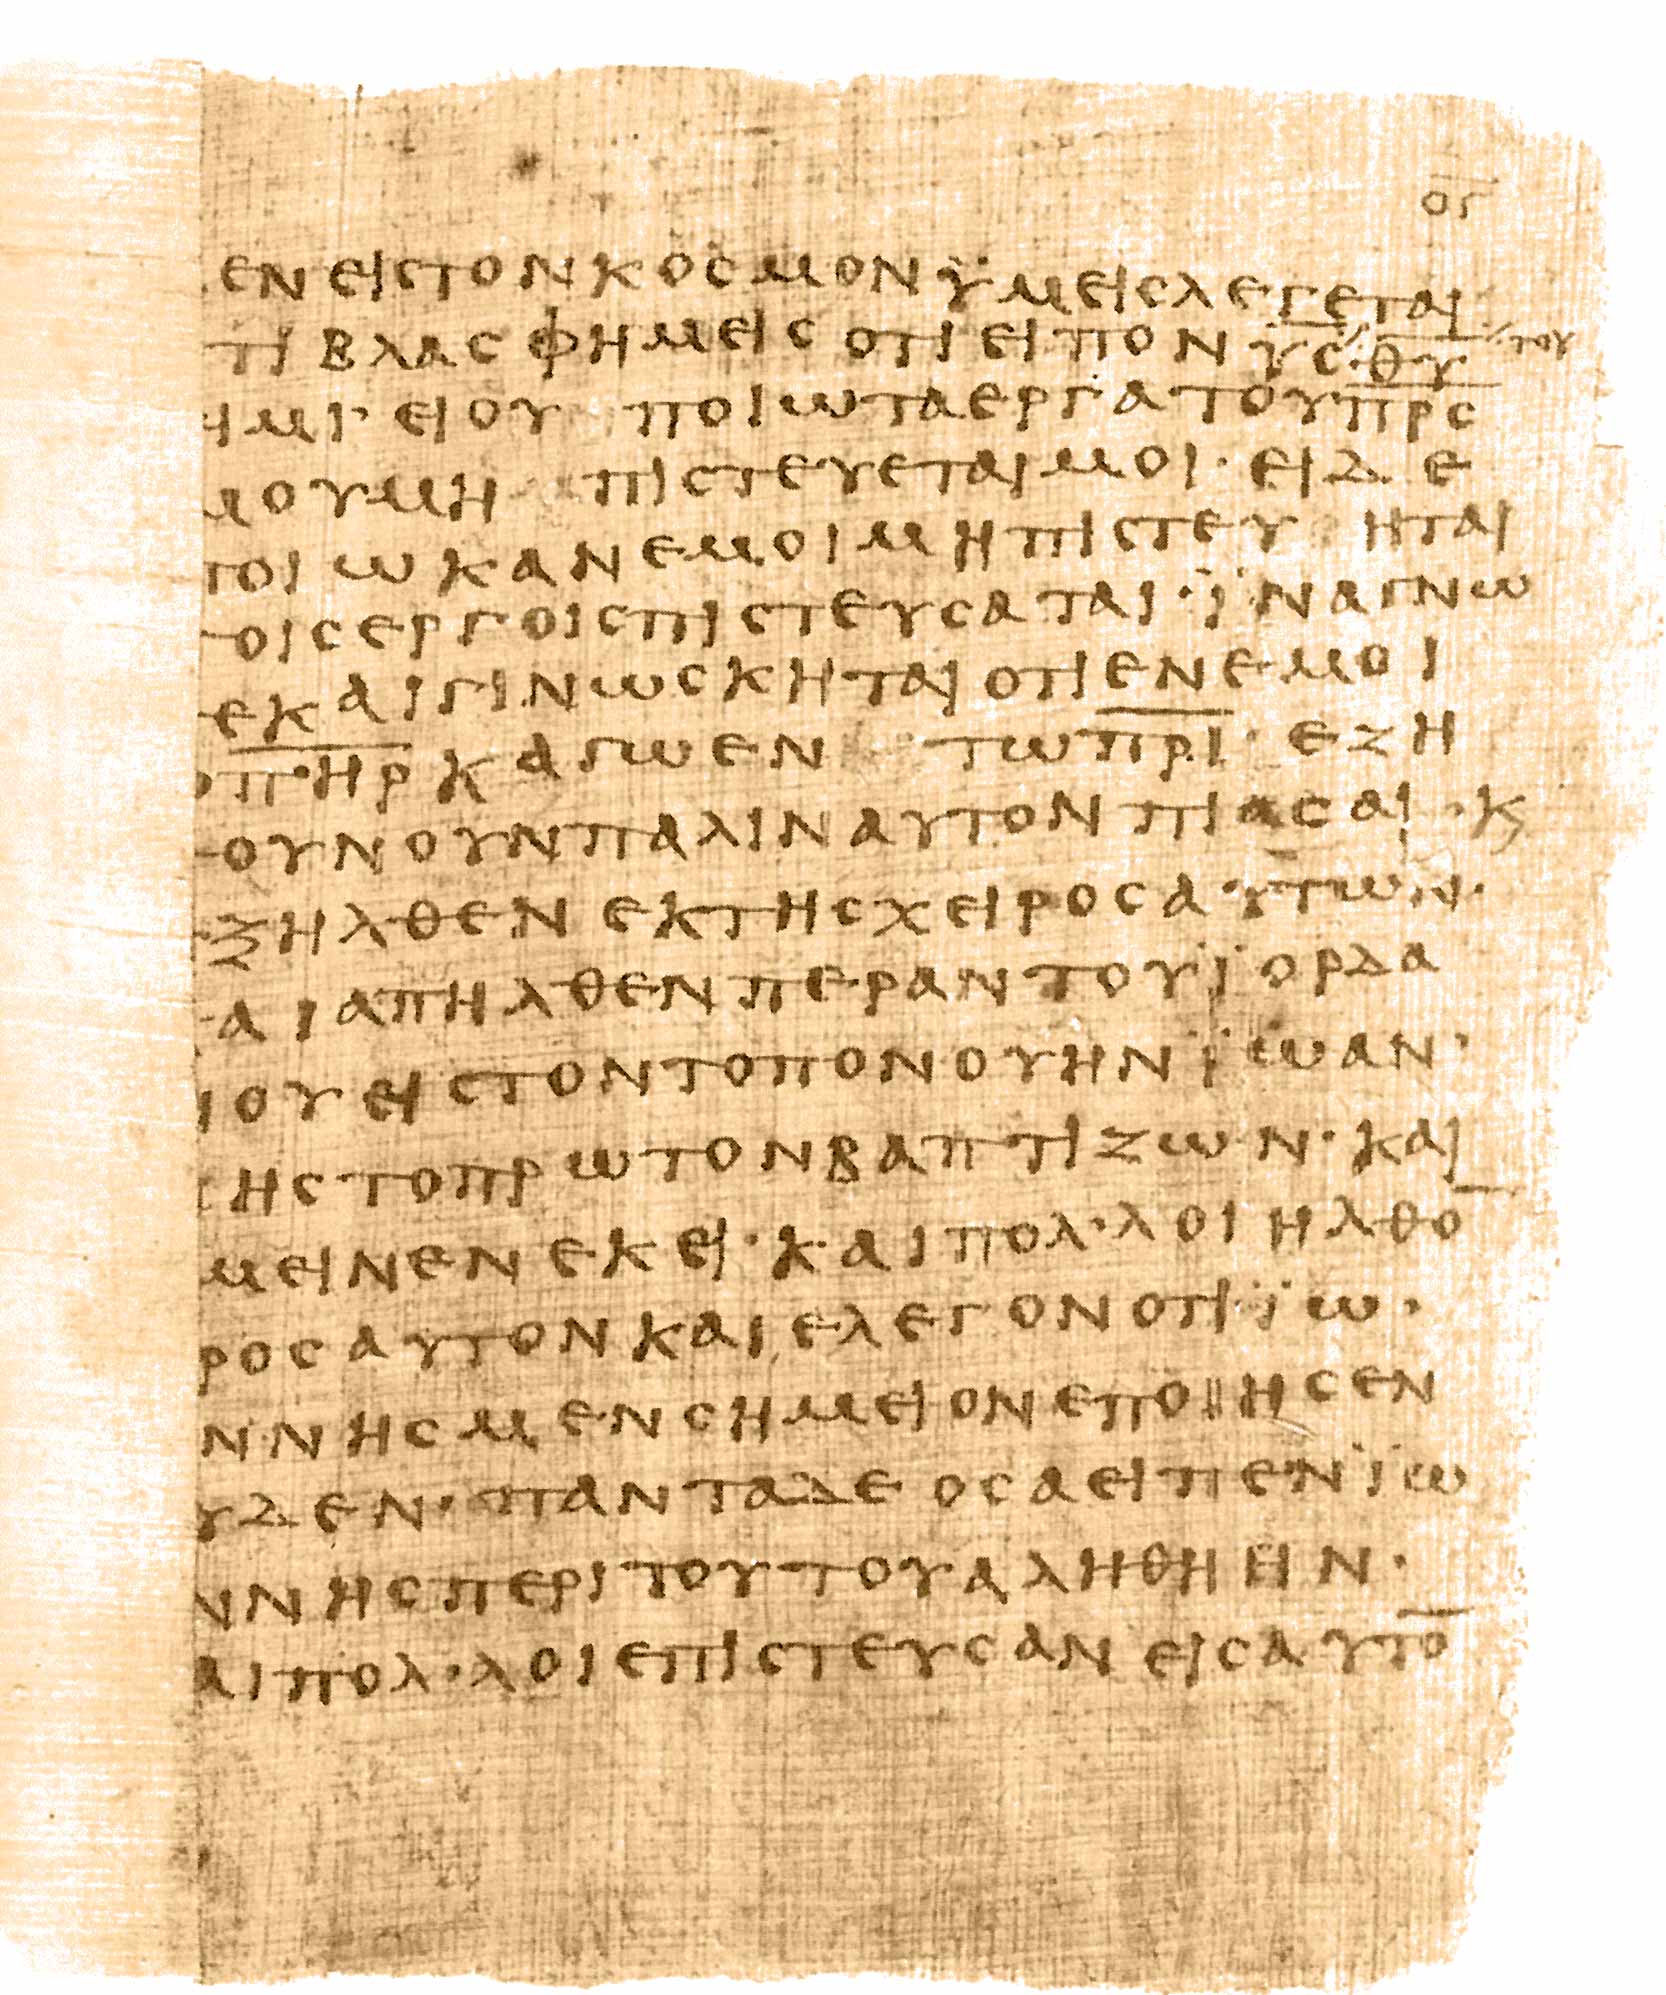 ΟΓ
ΕΝ ΕΙϹ ΤΟΝ ΚΟϹΜΟΝ ΫΜΕΙϹ ΛΕΓΕΤΑΙ
ΤΙ ΒΛΑϹΦΗΜΕΙϹ ΟΤΙ ΕΙΠΟΝ Υ̅Ϲ̅ · Θ̅Υ̅ ΤΟΥ
ΙΜΙ · ΕΙ ΟΥ ΠΟΙΩ ΤΑ ΕΡΓΑ ΤΟΥ Π̅Ρ̅Ϲ̅
ΜΟΥ ΜΗ ΠΙϹΤΕΥΕΤΑΙ ΜΟΙ · ΕΙ ΔΕ
ΠΟΙΩ ΚΑΝ ΕΜΟΙ ΜΗ ΠΙϹΤΕΥΗΤΑΙ
ΤΟΙϹ ΕΡΓΟΙϹ ΠΙϹΤΕΥϹΑΤΑΙ · ΪΝΑ ΓΝΩ
ΤΕ ΚΑΙ ΓΙΝΩϹΚΗΤΑΙ ΟΤΙ ΕΝ ΕΜΟΙ
Ο Π̅·Η̅Ρ̅ ΚΑΓΩ ΕΝ ΤΩ Π̅Ρ̅Ι̅ · ΕΖΗ
ΤΟΥΝ ΟΥΝ ΠΑΛΙΝ ΑΥΤΟΝ ΠΙΑϹΑΙ · Κ
ΕΞΗΛΘΕΝ ΕΚ ΤΗϹ ΧΕΙΡΟϹ Α·ΥΤΩΝ ·
ΚΑΙ ΑΠΗΛΘΕΝ ΠΕΡΑΝ ΤΟΥ ΪΟΡΔΑ
ΝΟΥ ΕΙϹ ΤΟΝ ΤΟΠΟΝ ΟΥ ΗΝ ΪΩΑΝ ·
ΝΗϹ ΤΟ ΠΡΩΤΟΝ ΒΑΠΤΙΖΩΝ · ΚΑΙ
ΜΕΙΝΕΝ ΕΚΕΙ · ΚΑΙ ΠΟΛ·ΛΟΙ ΗΛΘΟ̅
ΡΟϹ ΑΥΤΟΝ ΚΑΙ ΕΛΕΓΟΝ ΟΤΙ ΪΩ ·
ΑΝ·ΝΗϹ ΜΕΝ ϹΗΜΕΙΟΝ ΕΠΟΙΗϹΕΝ
ΥΔΕΝ · ΠΑΝΤΑ ΔΕ ΟϹΑ ΕΙΠΕΝ ΪΩ
ΝΝΗϹ ΠΕΡΙ ΤΟΥΤΟΥ ΑΛΗΘΗ ΗΝ ·
ΑΙ ΠΟΛ·ΛΟΙ ΕΠΙϹΤΕΥϹΑΝ ΕΙϹ ΑΥΤΟ̅